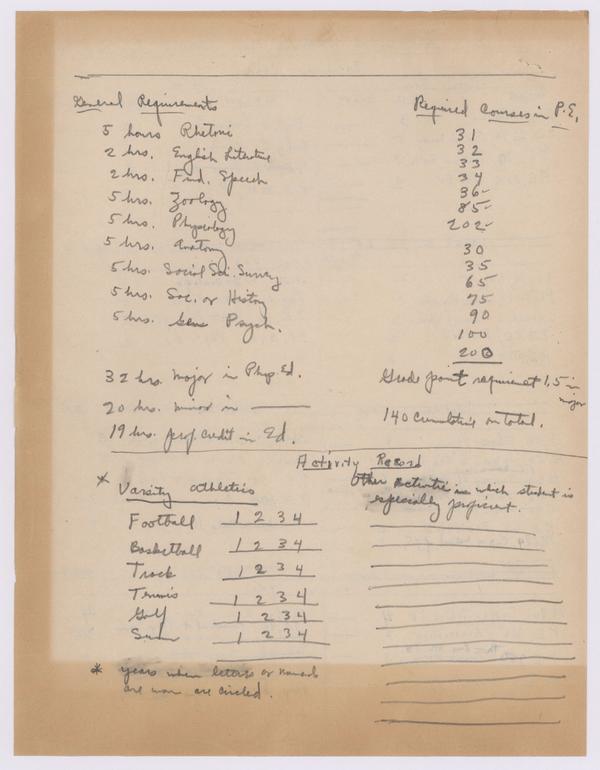 General Requirements
5 hours Rhetoric
2 hrs. English Literature
2 hrs. Fund. Speech
5 hrs. Zoology
5 hrs. Physiology
5 hrs. Anatomy
5 hrs. Social Sci. Survey
5 hrs. Soc. or History
5 hrs. Gen Psych.
32 hrs. major in Phys. Ed.
20 hrs. minor in
19 hrs. prof. credit in Ed.
Required Courses in P.E.
31
32
33
34
36-
85-
202-
30
35
65
75
90
100
200
Grade point requirement 1.5 in
major
140 cumulative on total.
Activity Record
* Varsity athletics
Football 1 2 3 4
Basketball 1 2 3 4
Track 1 2 3 4
Tennis 1 2 3 4
Golf 1 2 3 4
Swim 1 2 3 4
* years when letters or
are won are circled.
Other Activities in which student is
especially proficient.